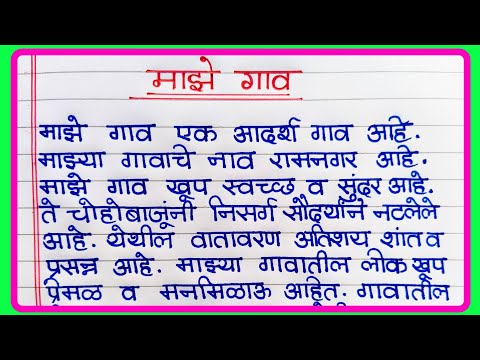 माझे गाव
माझे गाव एक आदर्श गाव आहे.
माझ्या गावाचे नाव रामनगर आहे.
माझे गाव खूप स्वच्छ व सुंदर आहे.
ते चोहोबाजूंनी निसर्ग सौंदर्याने नटलेले
आहे. येथील वातावरण अतिशय शांत व
प्रसन्न आहे. माझ्या गावातील लोक खूप
प्रेमळ व मनमिळाऊ आहेत. गावातील